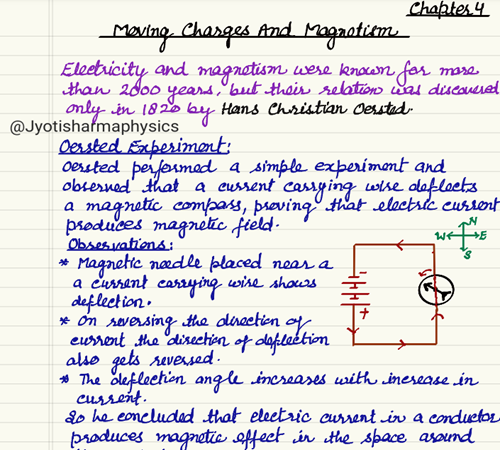 Chapter 4
Moving Charges And Magnetism
Electricity and magnetism were known for more
than 2000 years, but their relation was discovered
only in 1820 by Hans Christian Oersted.
@Jyotisharmaphysics
Oersted Experiment:
Oersted performed a simple experiment and
observed that a current carrying wire deflects
a magnetic compass, proving that electric current
produces magnetic field.
N
W E
S
Observations:
* Magnetic needle placed near a
a current carrying wire shows
deflection.
* On reversing the direction of
current the direction of deflection
also gets reversed.
-
+
* The deflection angle increases with increase in
current.
So he concluded that electric current in a conductor
produces magnetic effect in the space around